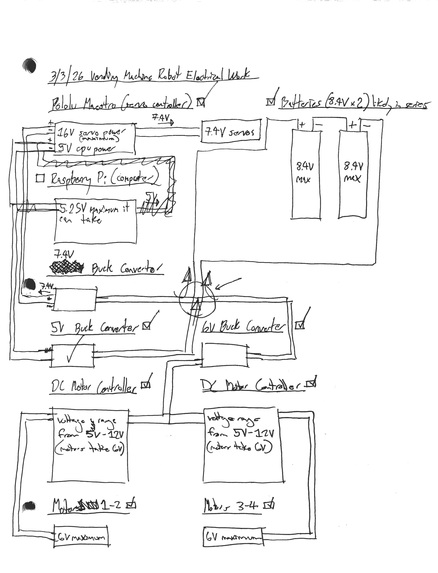 3/3/26 Vending Machine Robot Electrical Work
Pololu Maestro (servo controller)
Batteries (8.4V x 2) likely in series
7.4V
16V servo power
(maximum)
5V cpu power
7.4V servos
+ -
+ -
8.4V
max
8.4V
max
Raspberry Pi (computer)
5V
5.25V maximum it
can take
7.4V
Buck Converter
7.4V
5V Buck Converter
6V Buck Converter
DC Motor Controller
DC Motor Controller
voltage range
from 5V-12V
(motors take 6V)
voltage range
from 5V-12V
(motors take 6V)
Motors 1-2
Motors 3-4
6V maximum
6V maximum